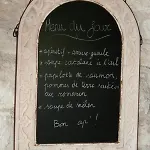 Menu du jour
apéritif - amuse gueule
soupe catalane à l'ail
papillote de saumon,
pommes de terre sautées
au romarin
soupe de melon
Bon ap'!